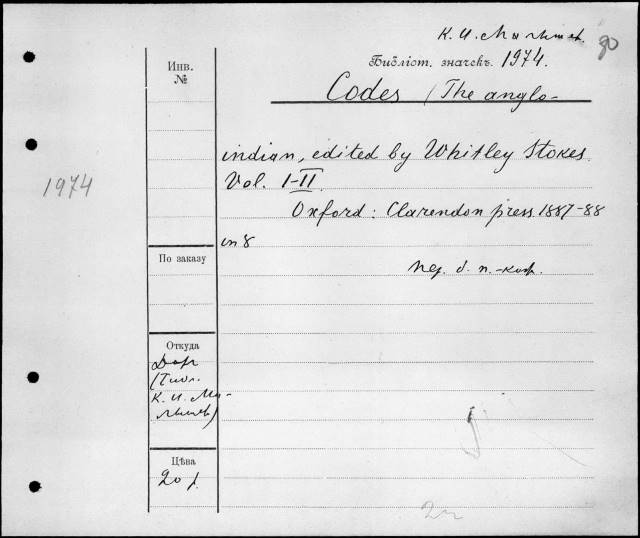 К. И. Малышев.
Библіот. значекъ. 1974.
Codes (The anglo-
indian, edited by Whitley Stokes.
Vol. I-II.
Oxford: Clarendon press. 1887-88
in 8
пер. б. п.-кож.
Инв.
№
1974
По заказу
Откуда
Дар
(Библ.
К. И. Ма-
лышев)
Цѣна
20 р.